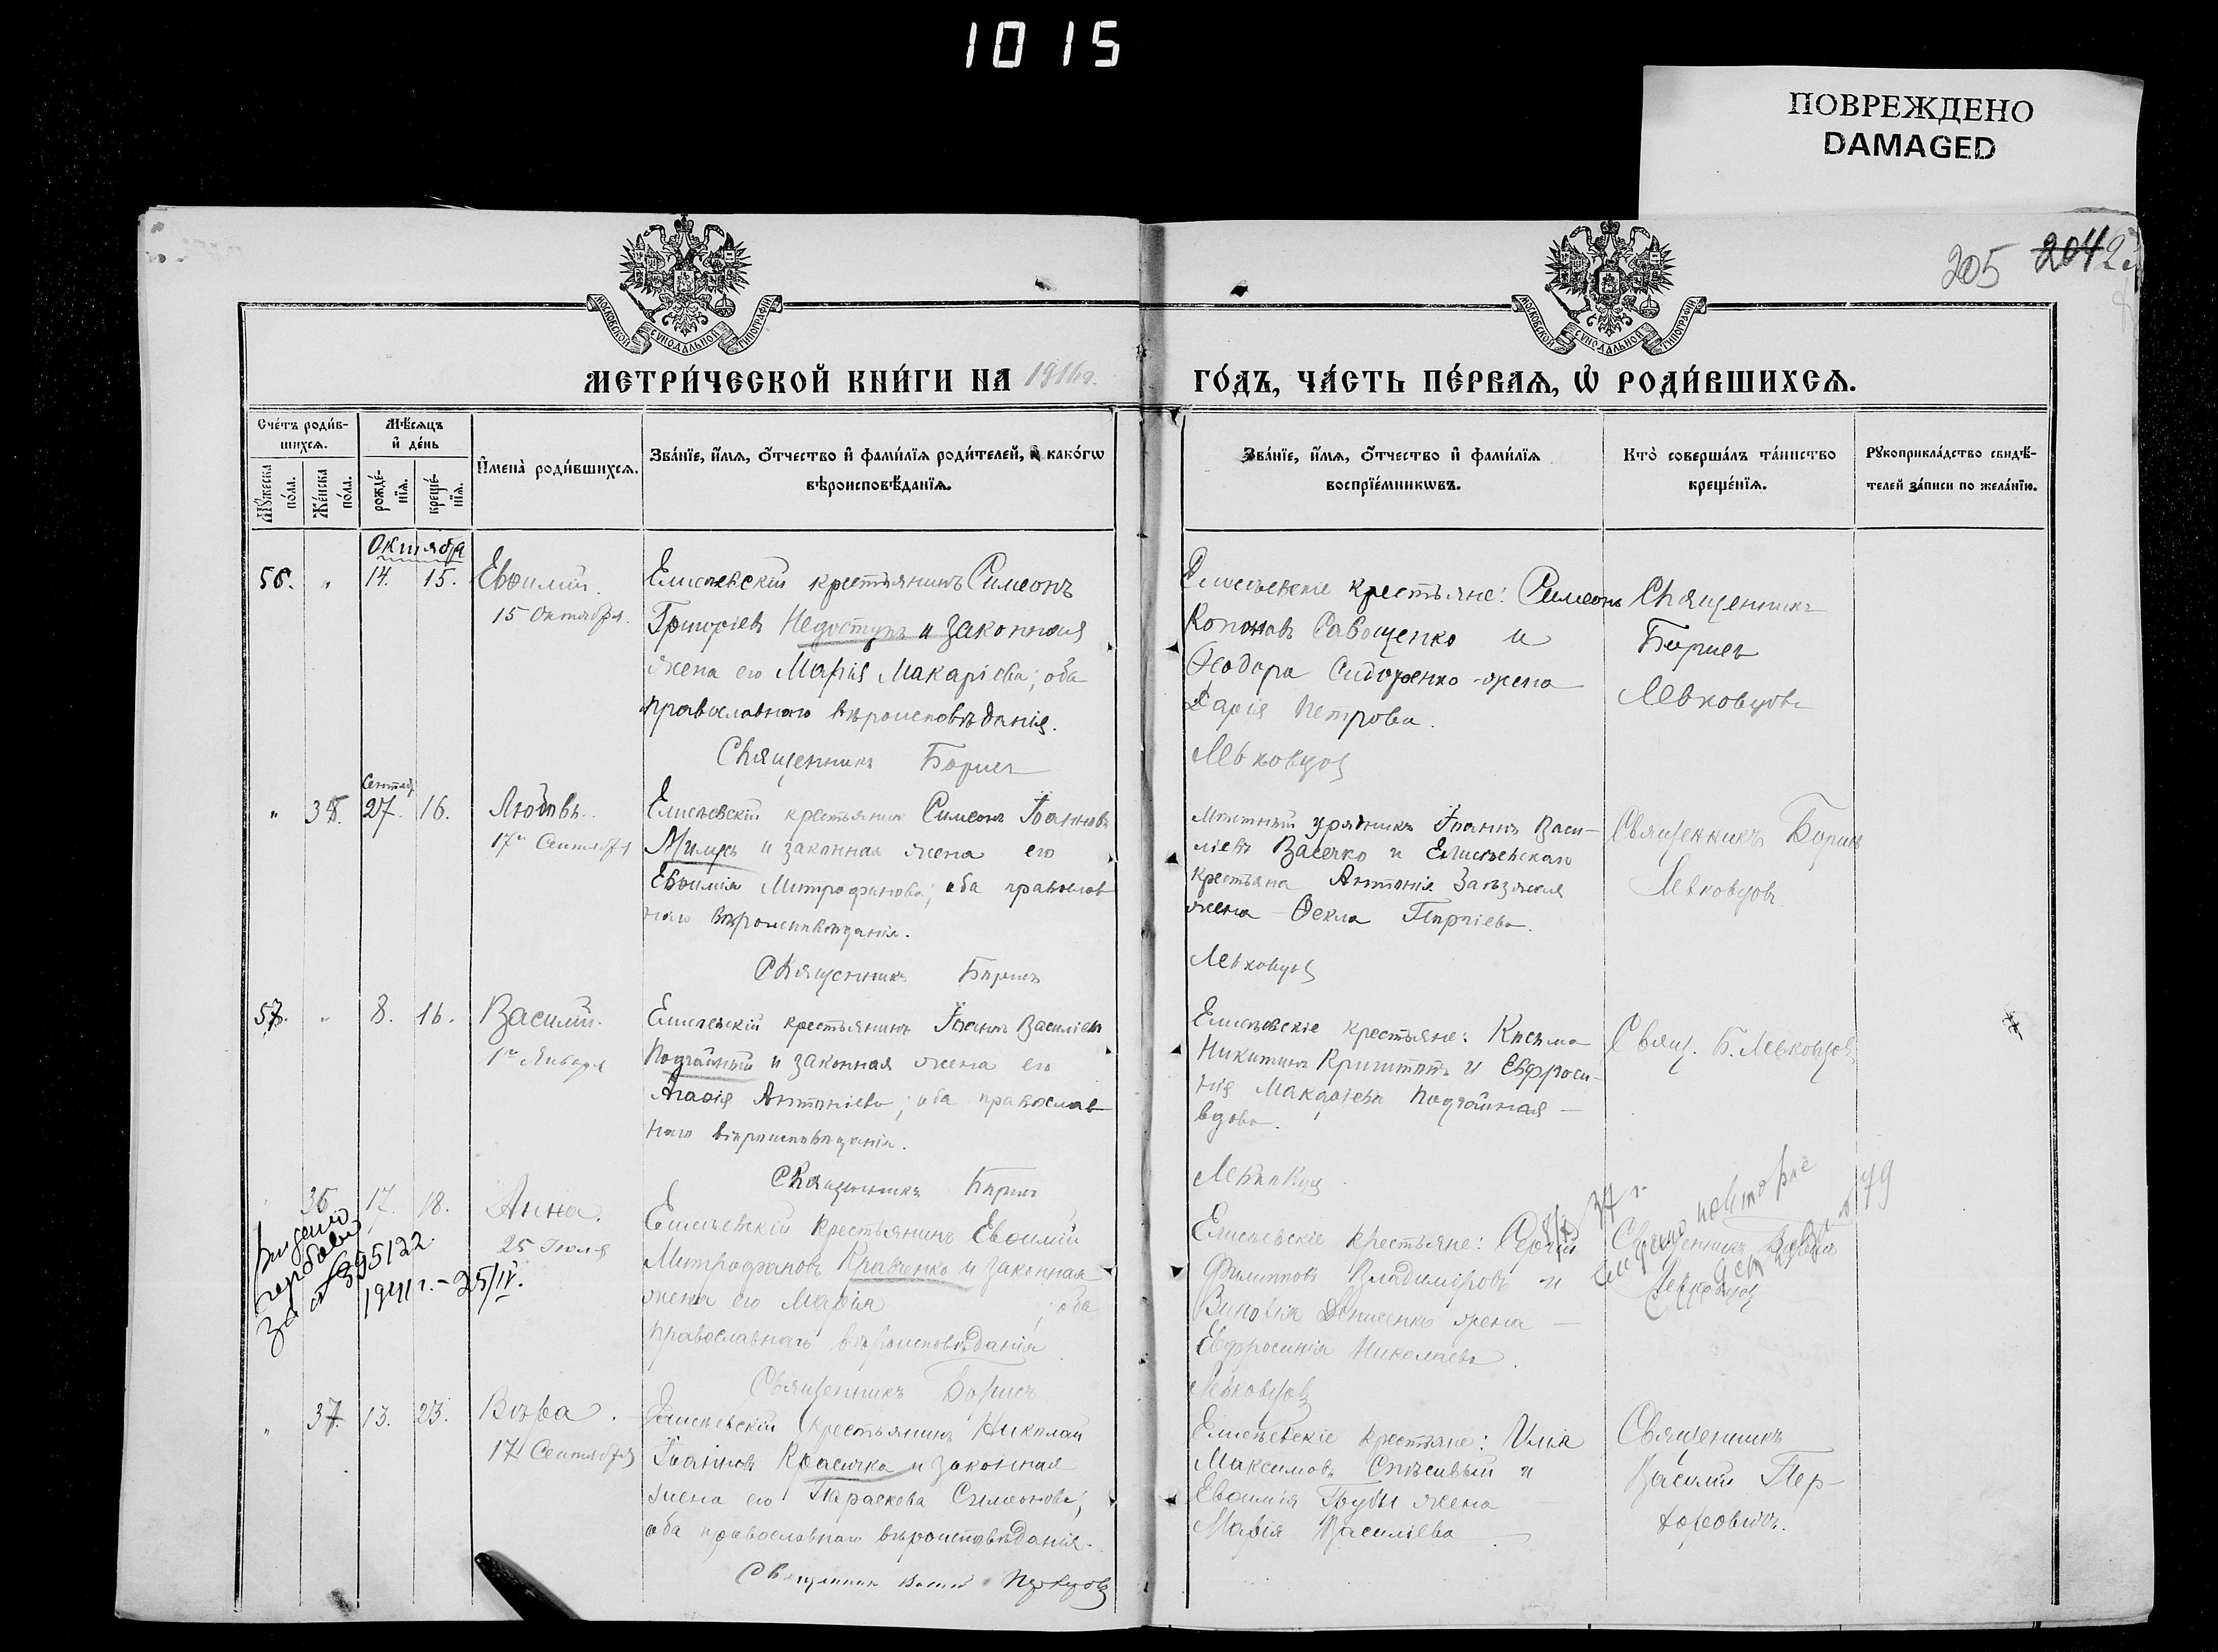 1015
ПОВРЕЖДЕНО
DAMAGED
205 204
МОСКОВСКОЙ СѴНОДАЛЬНОЙ ТИПОГРАФІИ
МОСКОВСКОЙ СѴНОДАЛЬНОЙ ТИПОГРАФІИ
МЕТРИ́ЧЕСКОЙ КНИ́ГИ НА 1916 г.
ГО́ДЪ, ЧА́СТЬ ПЕ́РВАЯ, Ѡ РОДИ́ВШИХСЯ.
Сче́тъ роди́в-
шихся.
Мѣ́сяцъ
и де́нь
Мꙋ́жеска
по́ла.
Же́нска
по́ла.
рожде́-
нїя.
креще́-
нїя.
И҆мена̀ роди́вшихся.
Зва́нїе, и҆́мя, ѻ҆́тчество и҆ фами́лїя роди́телей, и҆ како́гѡ
вѣроисповѣ́данїя.
Зва́нїе, и҆́мя, ѻ҆́тчество и҆ фами́лїя
воспрїе́мникѡвъ.
Кто̀ соверша́лъ та́инство
креще́нїя.
Рꙋкоприкла́дство свидѣ́-
телей за́писи по жела́нїю.
Октября
56. " 14. 15. Евѳимій.
15 Октября.
Елисѣевскій крестьянинъ Симеонъ
Григоріевъ Недоступъ и законная
жена его Марія Макаріева; оба
православнаго вѣроисповѣданія.
Священникъ Борисъ
Елисѣевскіе крестьяне: Симеонъ
Кононовъ Савощенко и
Ѳеодора Сидоренко жена
Дарія Петрова.
Левковцов
Священникъ
Борисъ
Левковцовъ
Сентяб.
" 35. 27. 16. Любовь.
17 Сентября
Елисѣевскій крестьянинъ Симеонъ Іоанновъ
и законная жена его
Евѳимія Митрофанова; оба православ
наго вѣроисповѣданія.
Священникъ Борисъ
Мѣстный урядникъ Іоаннъ Васи-
ліевъ Васечко и Елисѣевскаго
крестьяна Антонія
жена Ѳекла
Левковцов
Священникъ Борисъ
Левковцовъ
57. " 8. 16. Василій.
1 Января
Елисѣевскій крестьянинъ Іоаннъ Василіевъ
Подгайный и законная жена его
Агаѳія Антоніева; оба православ
наго вѣроисповѣданія.
Священникъ Борисъ
Елисѣевскіе крестьяне: Косьма
Никитинъ и Евфроси-
нія Макаріева Подгайная
вдова.
Свящ. Б. Левковцовъ
" 36 17. 18. Анна.
25 Іюля
за № 595122
1941 г. - 25/IV.
Елисѣевскій крестьянинъ Евѳимій
Митрофановъ Кравченко и законная
жена его Марія ; оба
православнаго вѣроисповѣданія
Священникъ Борисъ
Елисѣевскіе крестьяне: Сергій
Филипповъ Владиміровъ и
Денисенко жена
Евфросинія Николаева.
Левковцов
Священникъ Борисъ
Левковцов
" 37. 13. 23. Вѣра.
17 Сентября
Елисѣевскій крестьянинъ Николай
Іоанновъ Красичка и законная
жена его Параскева Симеонова;
оба православнаго вѣроисповѣданія.
Священник
Елисѣевскіе крестьяне: Илія
Максимовъ Спѣсивый и
Евѳимія жена
Марія Василіева
Священникъ
Василій